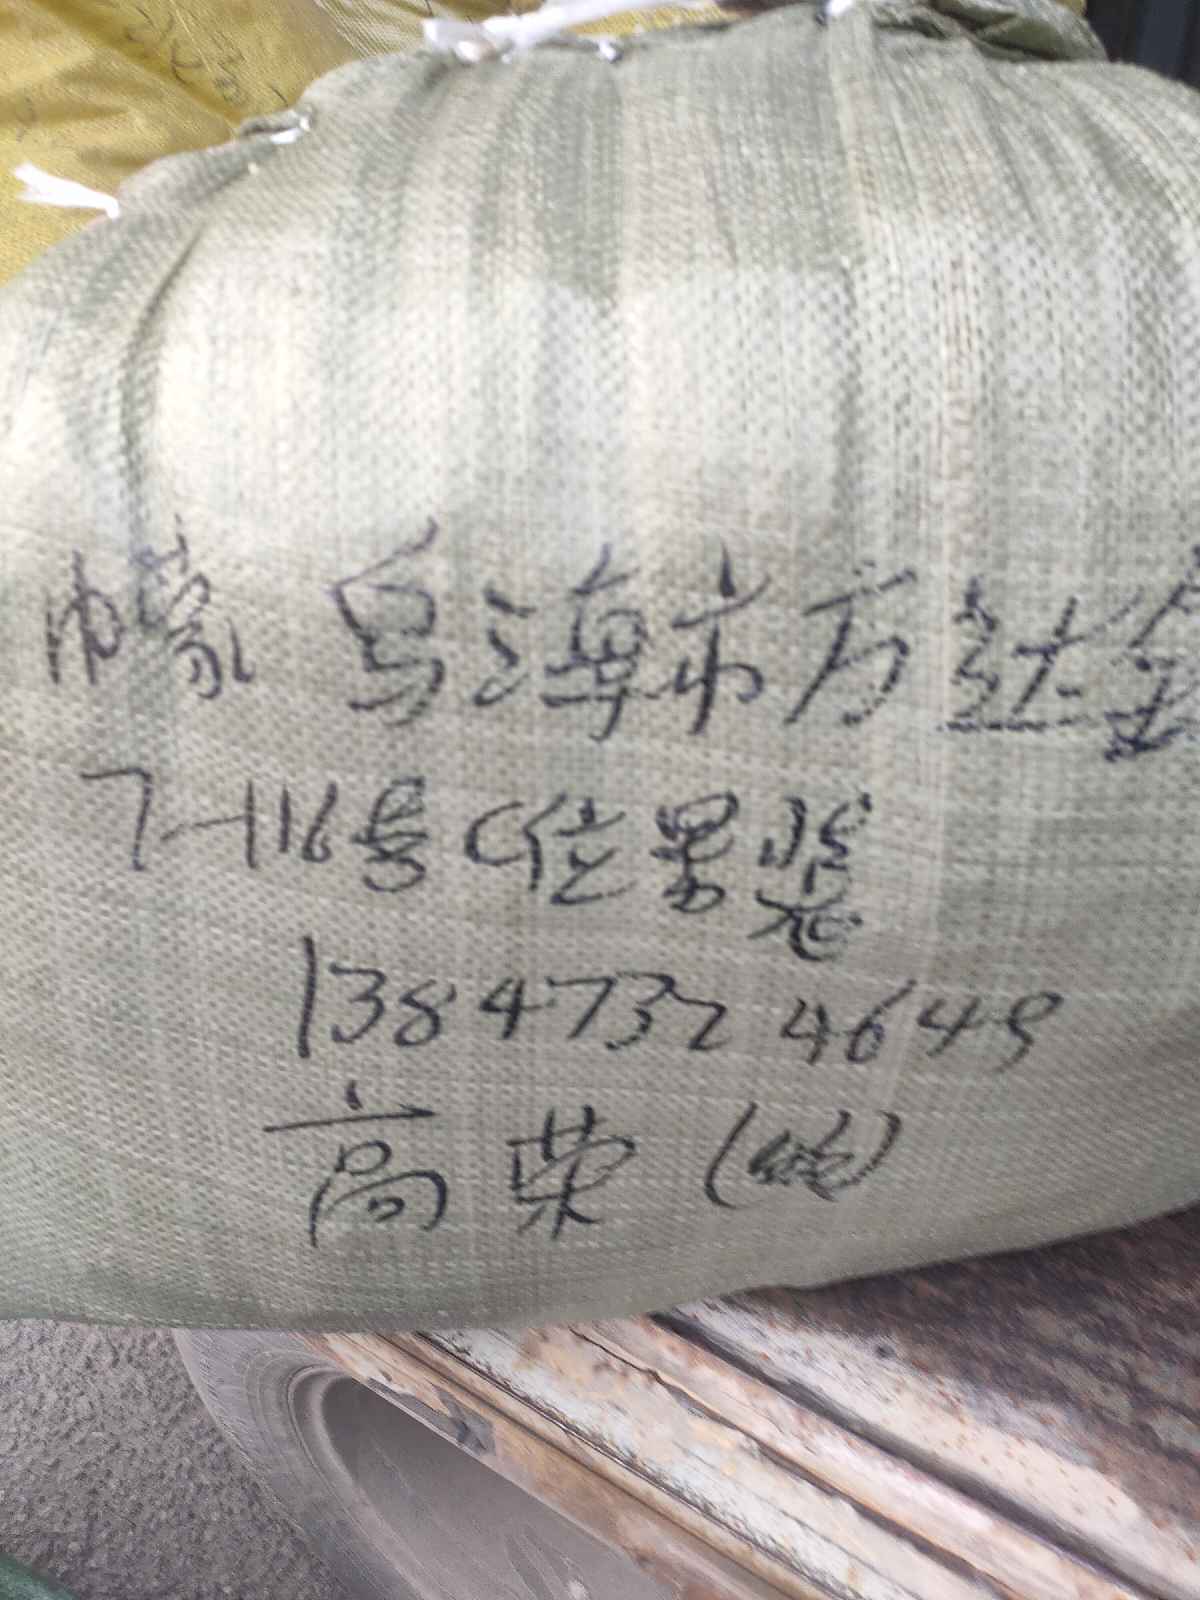 内蒙 乌海市万达金
7-116号C位男装
13847324649
高荣